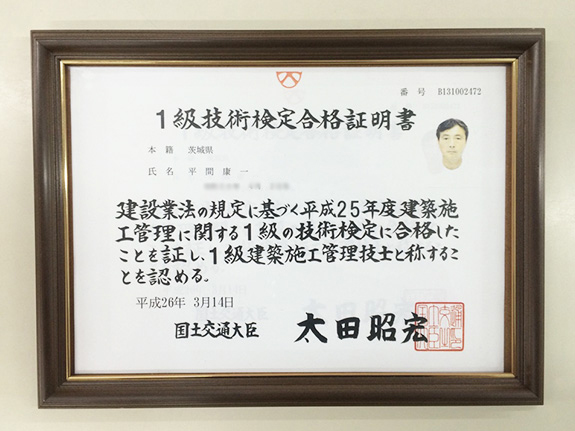 番号 B131002472
1級技術検定合格証明書
本籍 茨城県
氏名 平間康一
建設業法の規定に基づく平成25年度建築施
工管理に関する1級の技術検定に合格した
ことを証し、1級建築施工管理技士と称するこ
とを認める。
平成26年 3月14日
国土交通大臣 太田昭宏